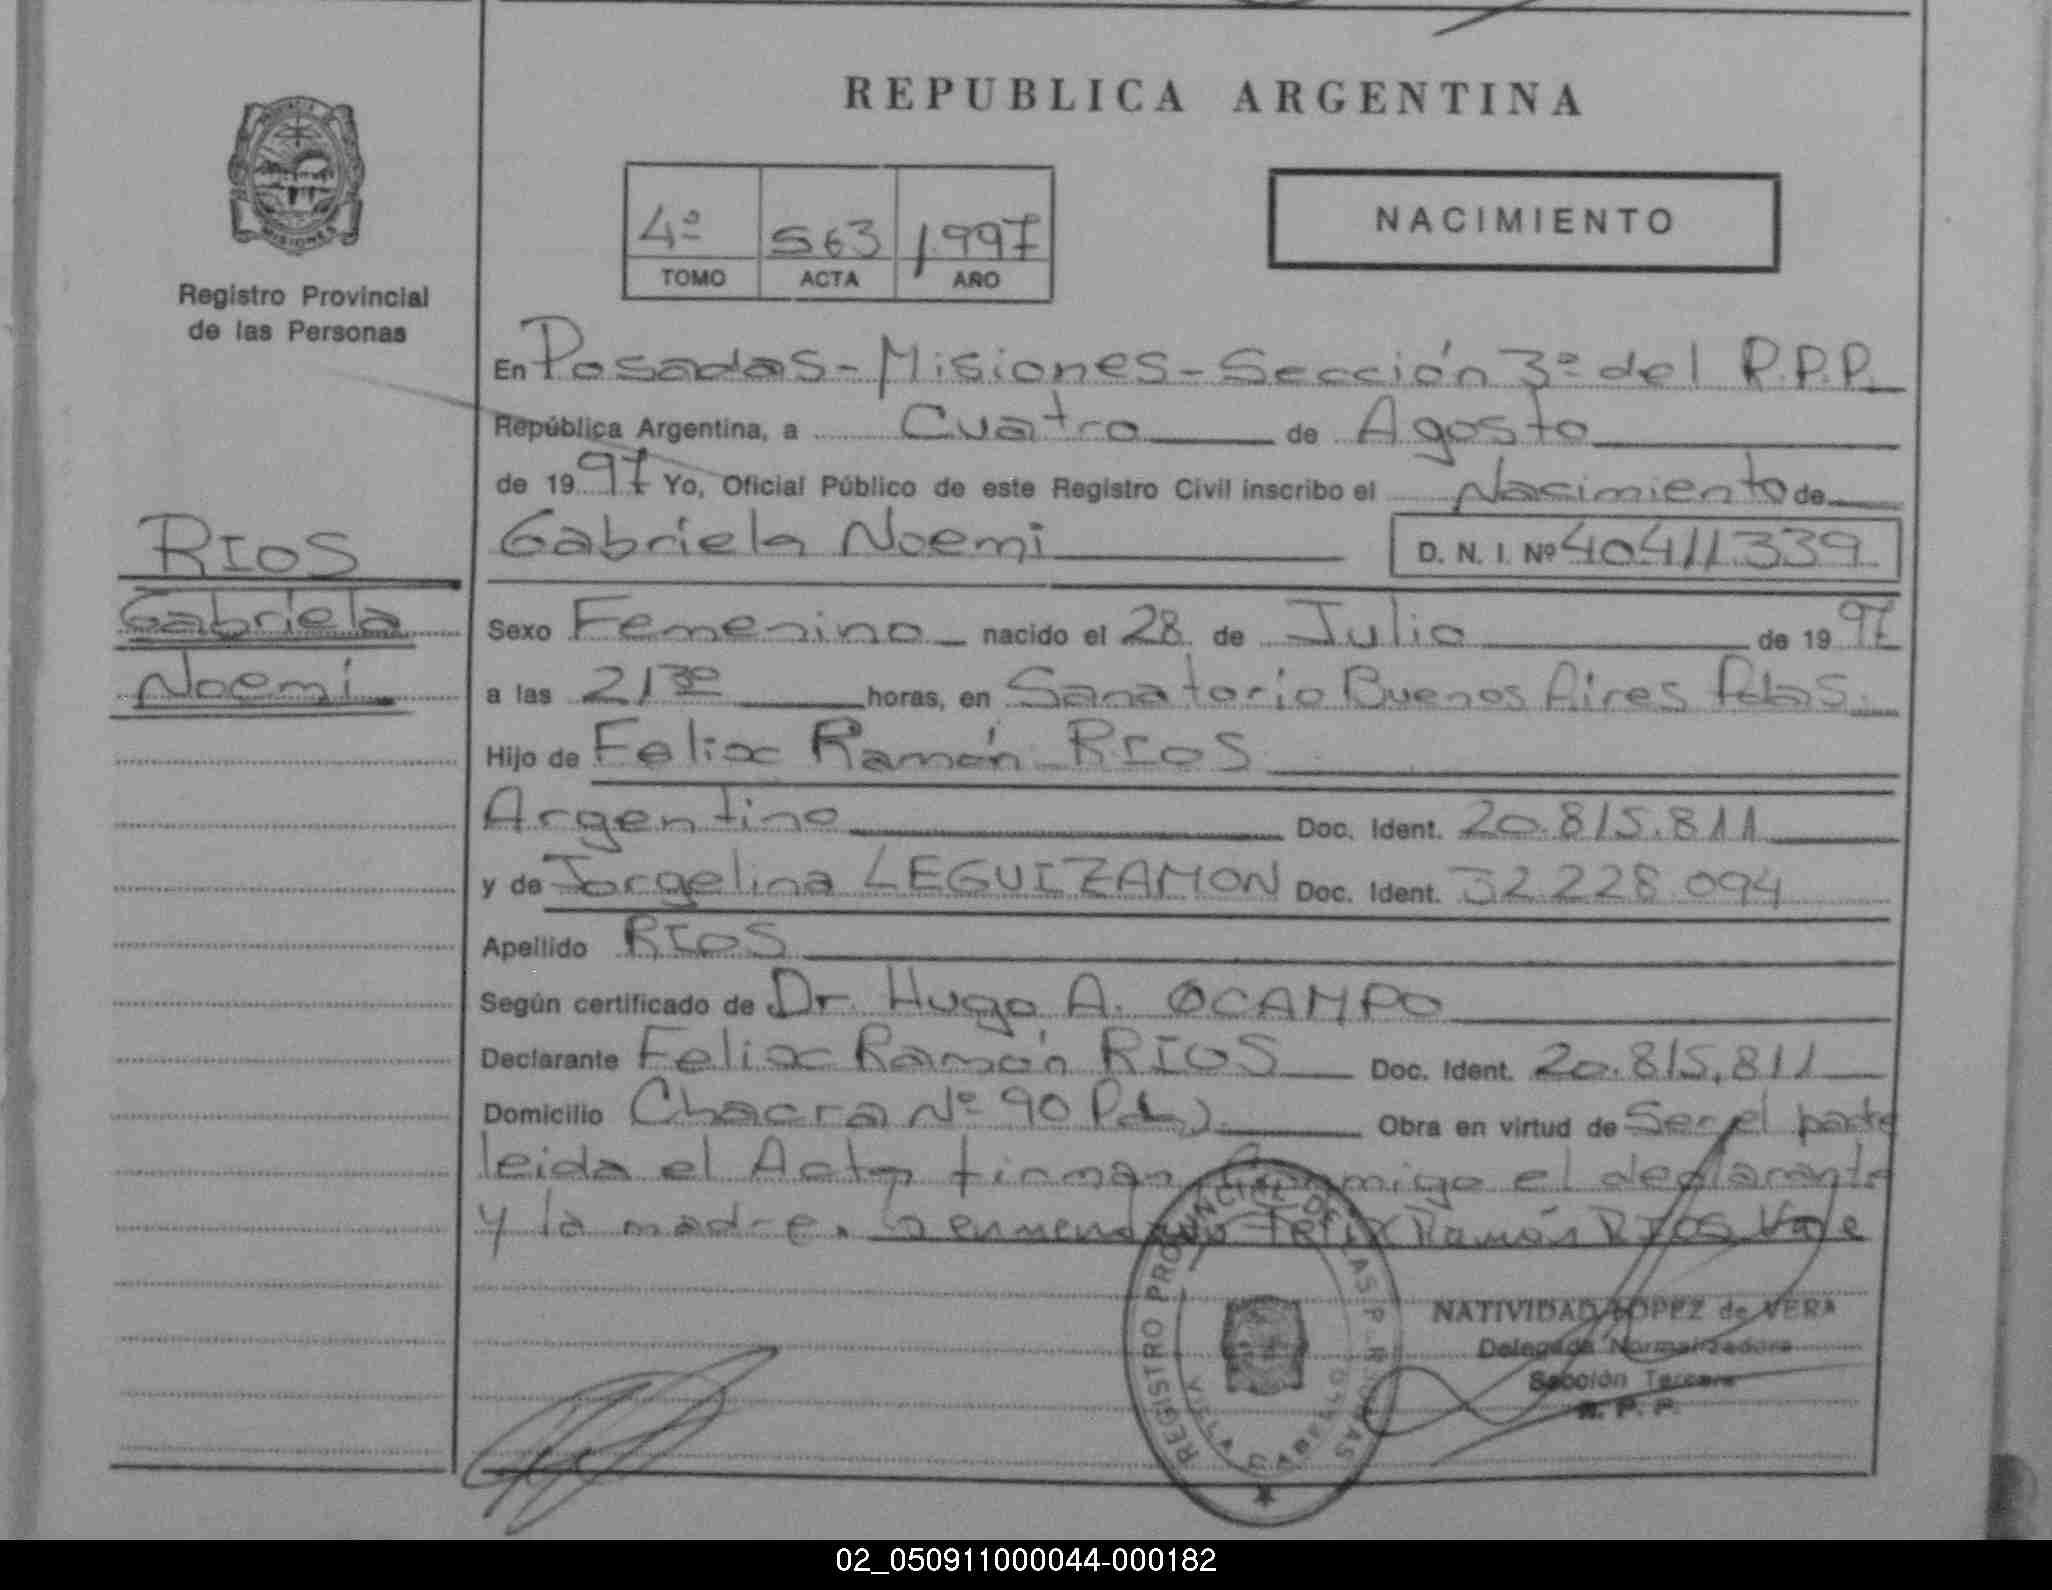 REPUBLICA ARGENTINA
MISIONES
Registro Provincial
de las Personas
4º 563 1.997
TOMO ACTA AÑO
NACIMIENTO
En Posadas - Misiones - Sección 3ª del R.P.P.
República Argentina, a Cuatro de Agosto
de 1997 Yo, Oficial Público de este Registro Civil inscribo el Nacimiento de
Gabriela Noemi D. N. I. Nº 40411.339
RIOS
Gabriela
Noemi
Sexo Femenino nacido el 28 de Julio de 1997
a las 21 30 horas, en Sanatorio Buenos Aires Pdas.
Hijo de Felix Ramón RIOS
Argentino Doc. Ident. 20.815.811
y de Jorgelina LEGUIZAMON Doc. Ident. 32 228 094
Apellido RIOS
Según certificado de Dr. Hugo A. OCAMPO
Declarante Felix Ramón RIOS Doc. Ident. 20.815.811
Domicilio Chacra Nº 90 Obra en virtud de Ser el padre
leida el Acta firman conmigo el declarante
y la madre. Lo enmendado Felix Ramón RIOS Vale
REGISTRO PROVINCIAL DE LAS PERSONAS
VILLA CABELLO
NATIVIDAD LOPEZ de VERA
Delegada Normalizadora
Sección Tercera
R. P. P.
02_050911000044-000182